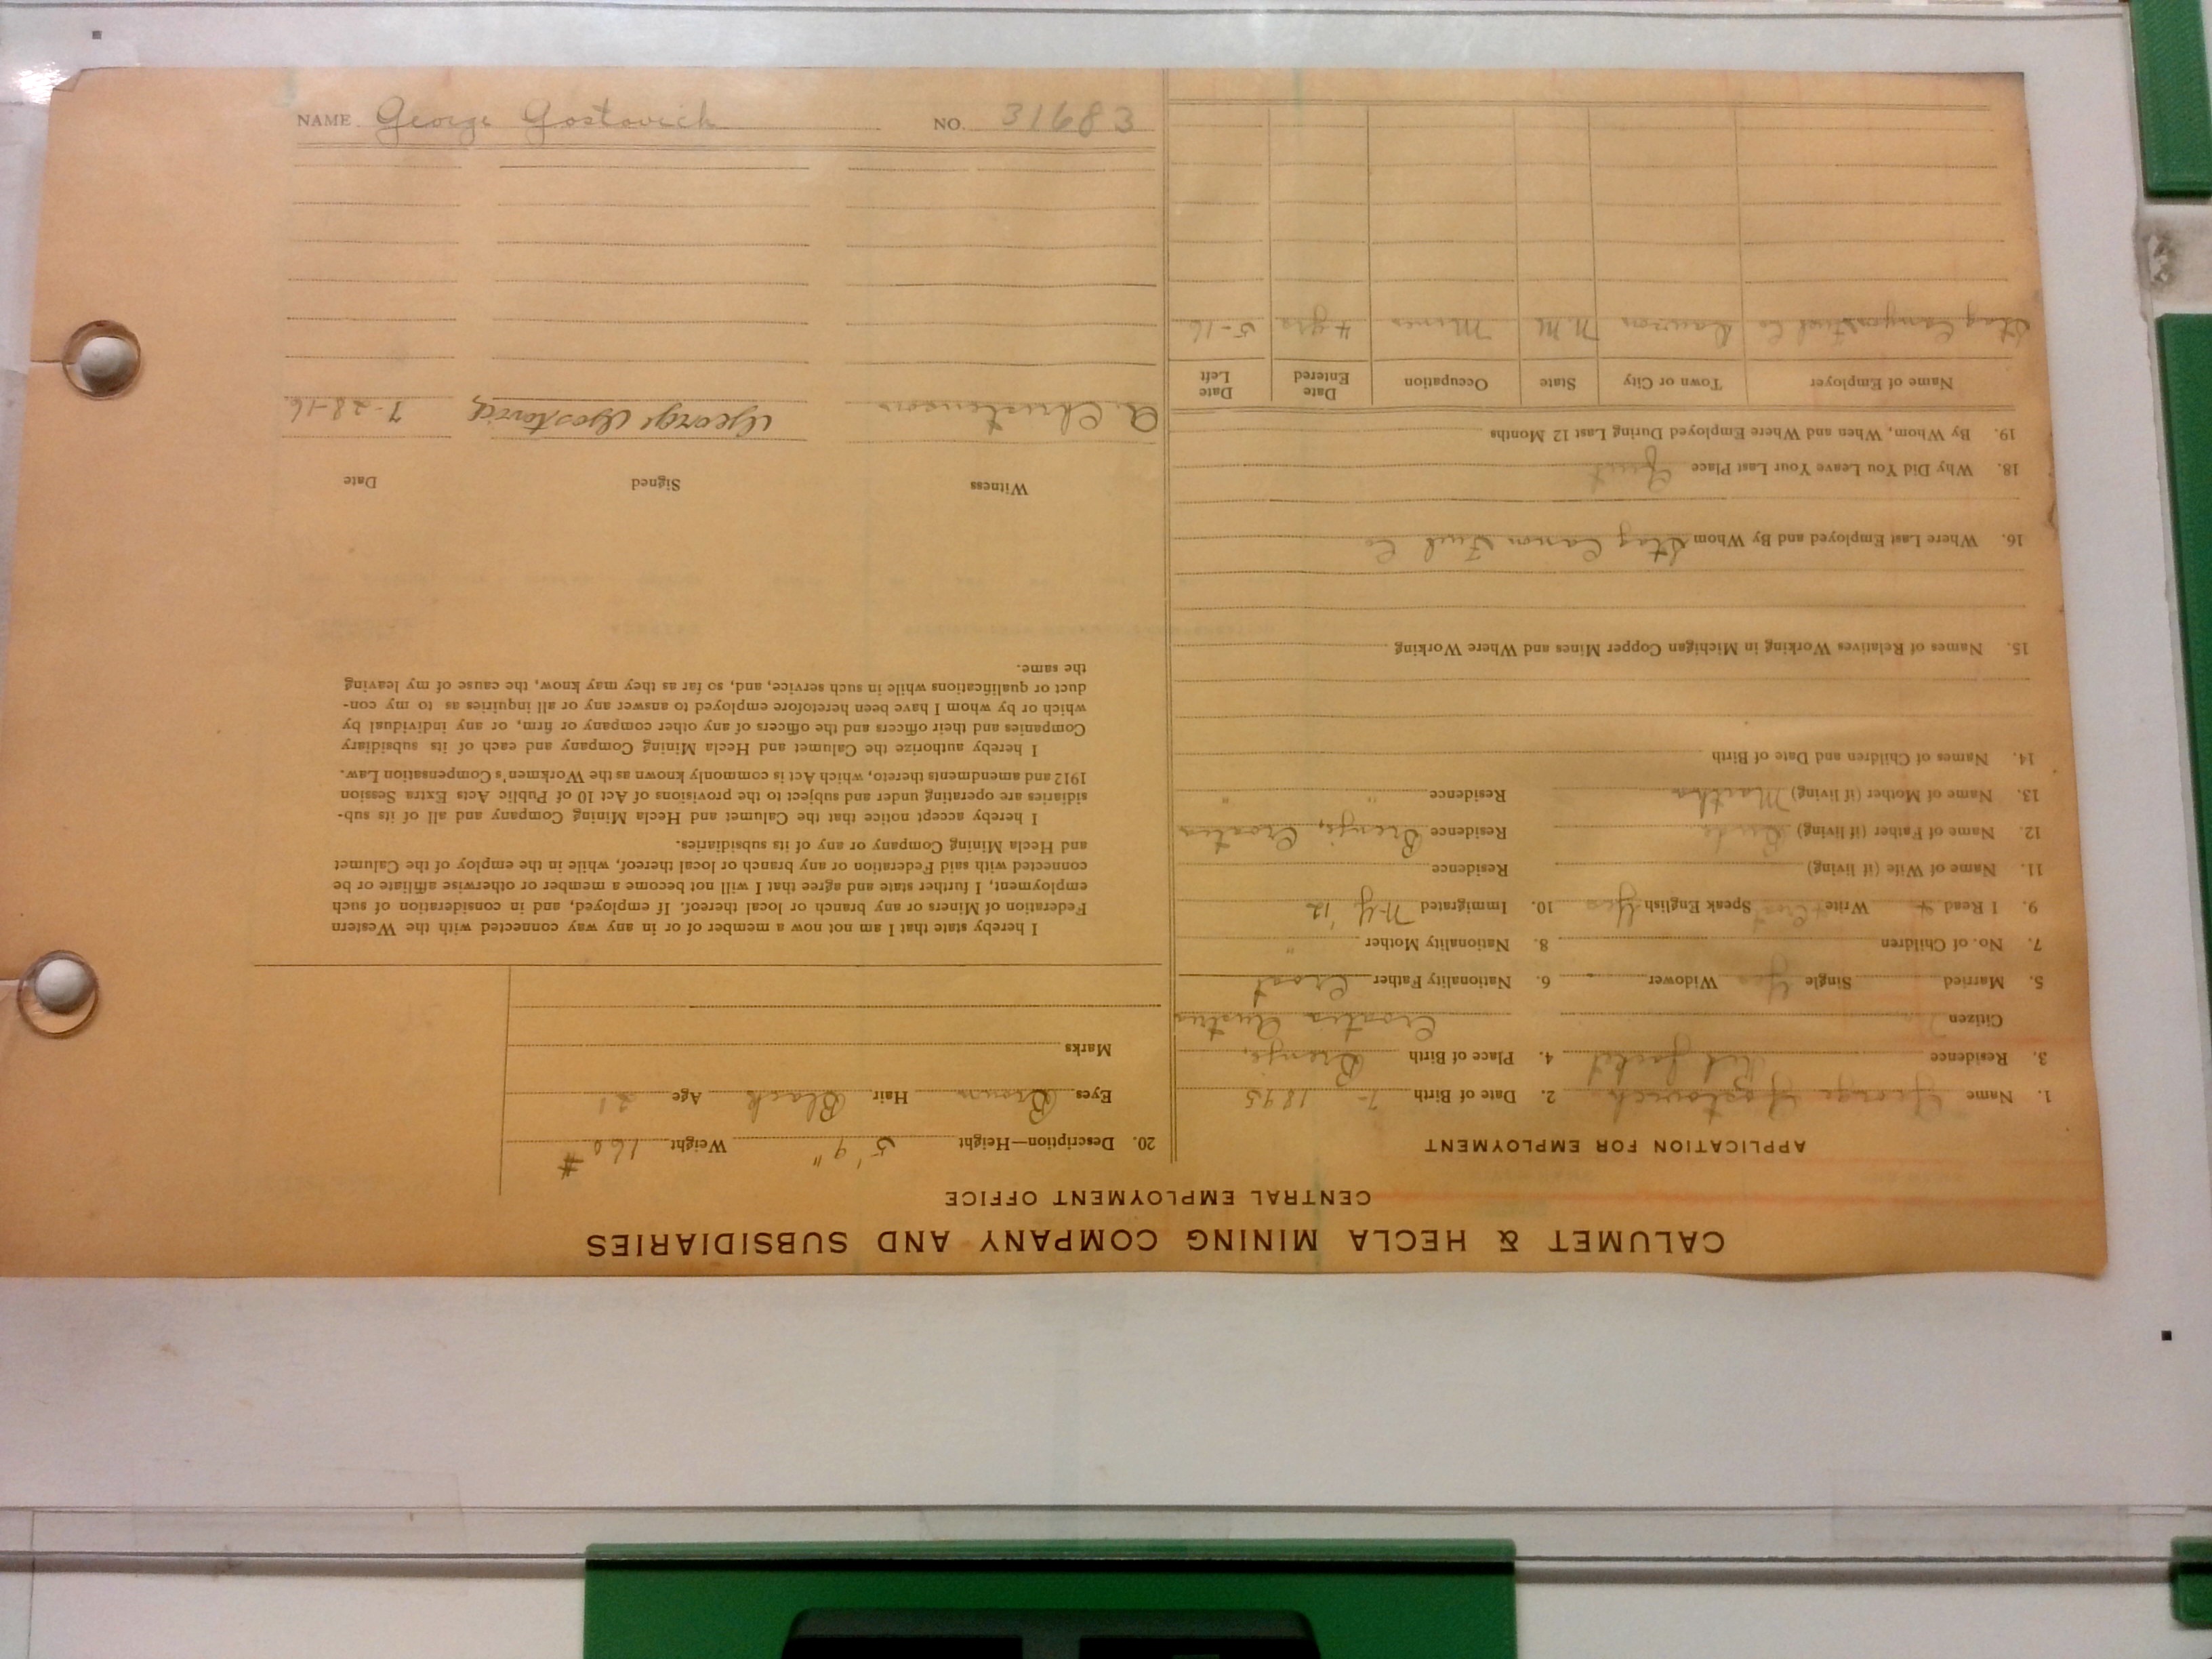 CALUMET & HECLA MINING COMPANY AND SUBSIDIARIES
CENTRAL EMPLOYMENT OFFICE
APPLICATION FOR EMPLOYMENT
1. Name George Gostovich 2. Date of Birth 7- 1895
3. Residence Red Jacket 4. Place of Birth
Citizen Croatia Austria
5. Married Single Yes Widower 6. Nationality Father Croat
7. No. of Children 8. Nationality Mother "
9. I Read Write Speak English Yes 10. Immigrated N.Y. '12
11. Name of Wife (if living) Residence
12. Name of Father (if living) Residence Croatia
13. Name of Mother (if living) Martha Residence " "
14. Names of Children and Date of Birth
15. Names of Relatives Working in Michigan Copper Mines and Where Working
16. Where Last Employed and By Whom Stag Canon Fuel Co
18. Why Did You Leave Your Last Place Quit
19. By Whom, When and Where Employed During Last 12 Months
Name of Employer Town or City State Occupation Date Entered Date Left
Stag Canyon Fuel Co Dawson N.M. Miner 4 yrs 5-16
20. Description—Height 5' 9" Weight 160 #
Eyes Brown Hair Black Age 21
Marks
I hereby state that I am not now a member of or in any way connected with the Western
Federation of Miners or any branch or local thereof. If employed, and in consideration of such
employment, I further state and agree that I will not become a member or otherwise affiliate or be
connected with said Federation or any branch or local thereof, while in the employ of the Calumet
and Hecla Mining Company or any of its subsidiaries.
I hereby accept notice that the Calumet and Hecla Mining Company and all of its sub-
sidiaries are operating under and subject to the provisions of Act 10 of Public Acts Extra Session
1912 and amendments thereto, which Act is commonly known as the Workmen's Compensation Law.
I hereby authorize the Calumet and Hecla Mining Company and each of its subsidiary
Companies and their officers and the officers of any other company or firm, or any individual by
which or by whom I have been heretofore employed to answer any or all inquiries as to my con-
duct or qualifications while in such service, and, so far as they may know, the cause of my leaving
the same.
Witness Signed Date
A. Christenson George Gostovich 7-28-16
NAME George Gostovich NO. 31683